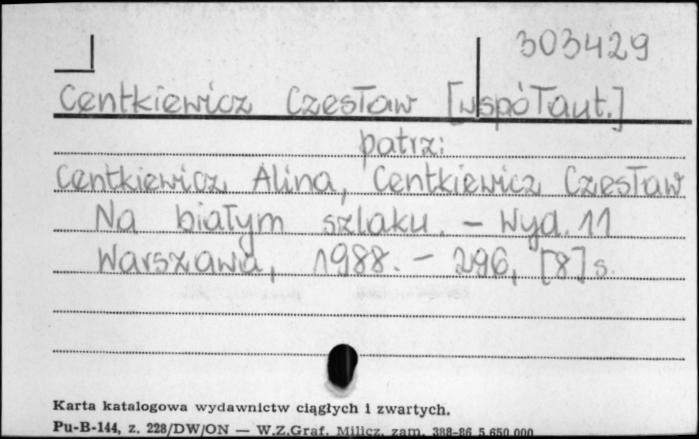 303429
Centkiewicz Czesław [współaut.]
patrz:
Centkiewicz Alina, Centkiewicz Czesław
Na białym szlaku. – Wyd. 11
Warszawa, 1988. – 296, [8] s.
Karta katalogowa wydawnictw ciągłych i zwartych.
Pu-B-144, z. 228/DW/ON — W.Z.Graf. Milicz, zam. 388-86 5.650.000